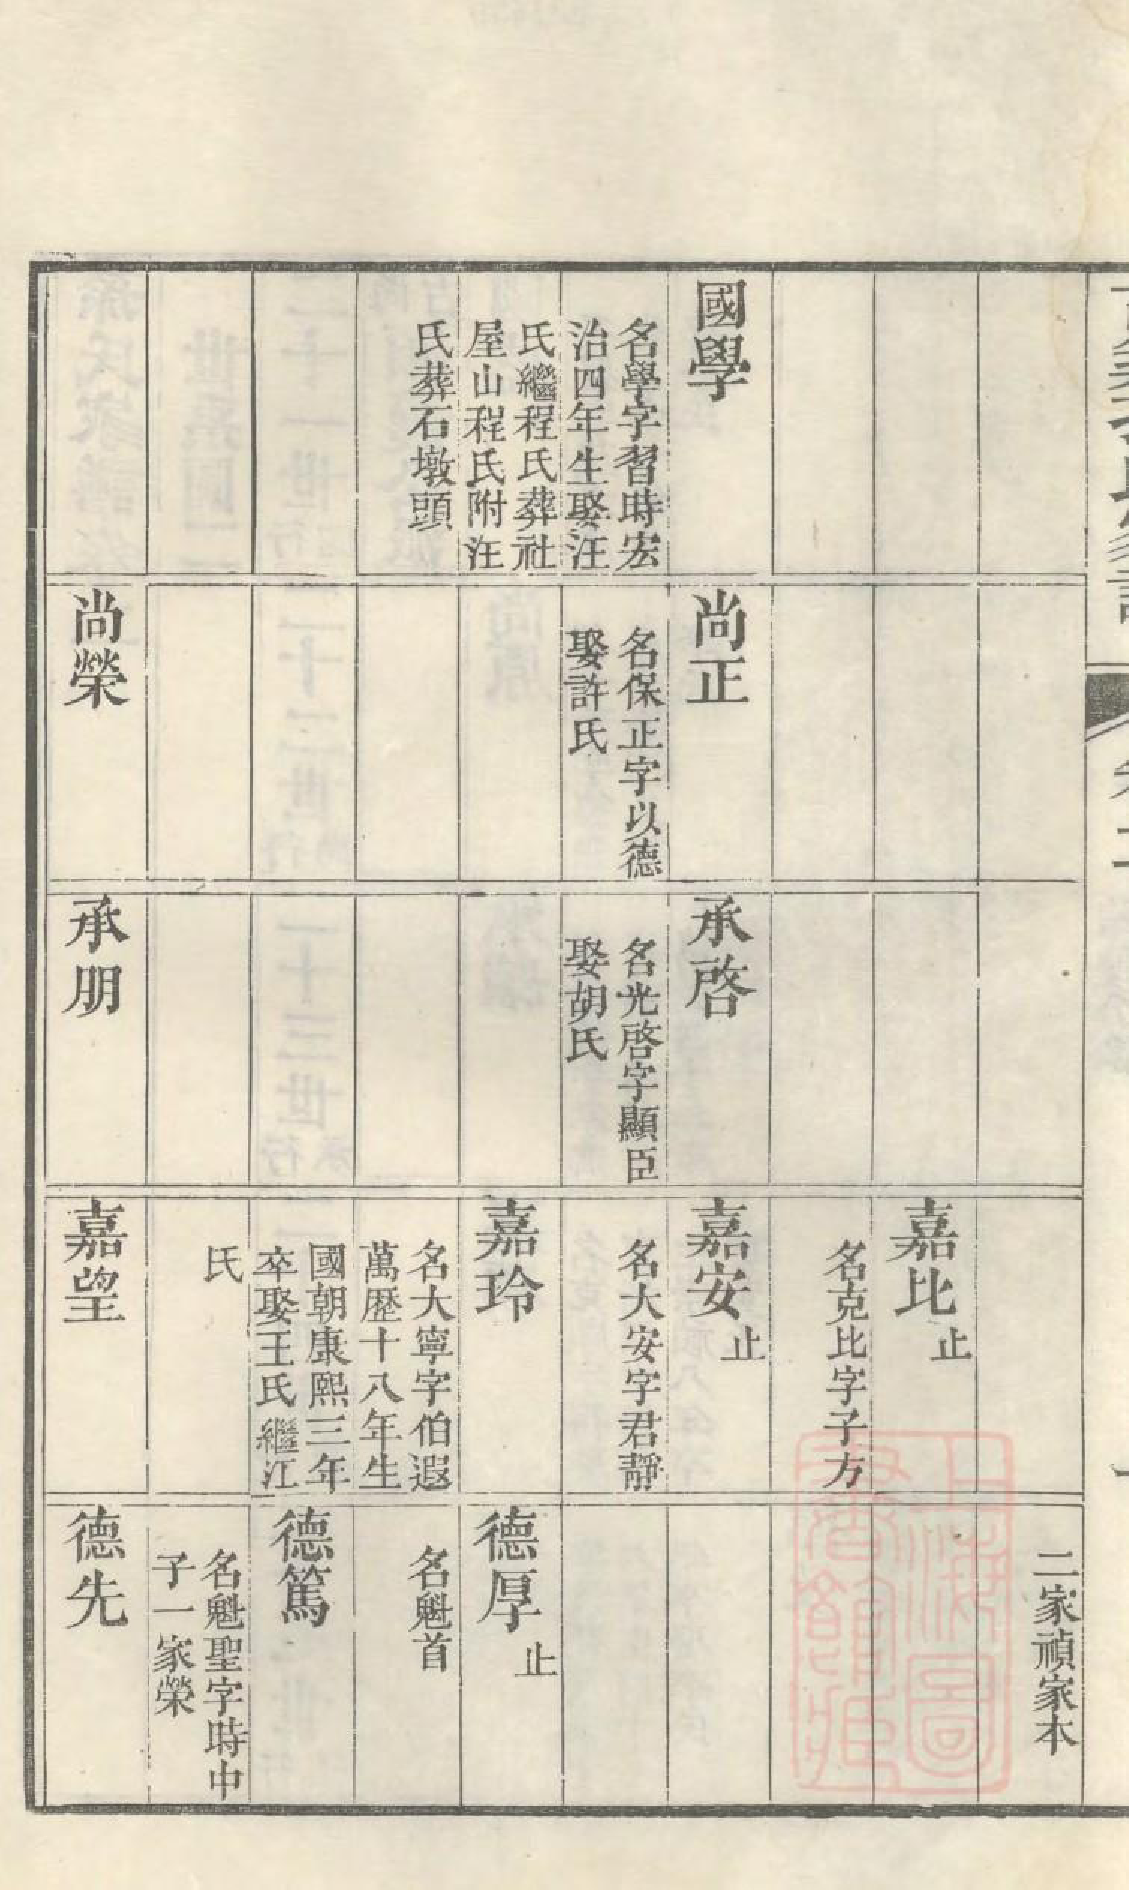 國學
名學字習時宏
治四年生娶汪
氏繼程氏葬社
屋山程氏附汪
氏葬石墩頭
尚正
名保正字以德
娶許氏
尚榮
承啓
名光啓字顯臣
娶胡氏
承朋
嘉比止
名克比字子方
嘉安止
名大安字君靜
嘉玲
名大寧字伯遐
萬歷十八年生
國朝康熙三年
卒娶王氏繼江
氏
嘉望
二家禎家本
德厚止
名魁首
德篤
名魁聖字時中
子一家榮
德先
上海圖
書館藏